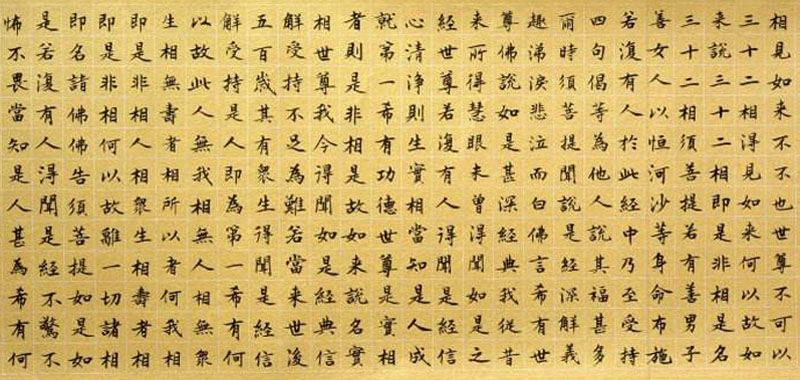 相見如來不不也世尊不可以
三十二相得見如來何以故如
來說三十二相即是非相是名
三十二相須菩提若有善男子
善女人以恒河沙等身命布施
若復有人於此經中乃至受持
四句偈等為他人說其福甚多
爾時須菩提聞說是經深解義
趣涕淚悲泣而白佛言希有世
尊佛說如是甚深經典我從昔
來所得慧眼未曾得聞如是之
經世尊若復有人得聞是經信
心清淨則生實相當知是人成
就第一希有功德世尊是實相
者則是非相是故如來說名實
相世尊我今得聞如是經典信
解受持不足為難若當來世後
五百歲其有眾生得聞是經信
解受持是人即為第一希有何
以故此人無我相無人相無眾
生相無壽者相所以者何我相
即是非相人相眾生相壽者相
即是非相何以故離一切諸相
即名諸佛佛告須菩提如是如
是若復有人得聞是經不驚不
怖不畏當知是人甚為希有何